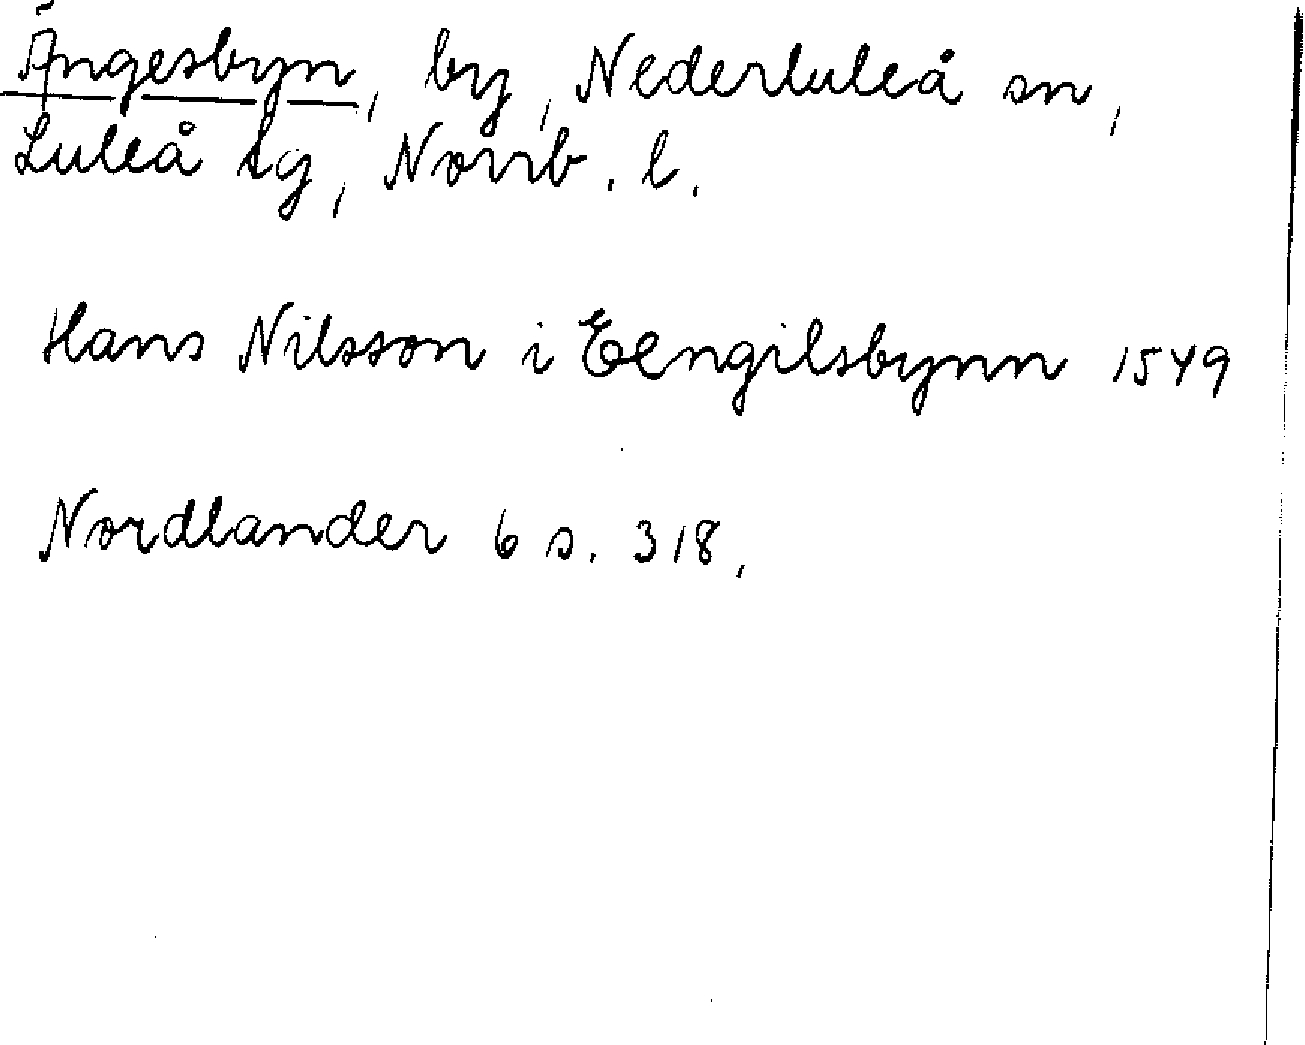 Ängesbyn, by, Nederluleå sn,
Luleå tg, Norrb. l.
Hans Nilsson i Eengilsbynn 1549
Nordlander 6 s. 318,